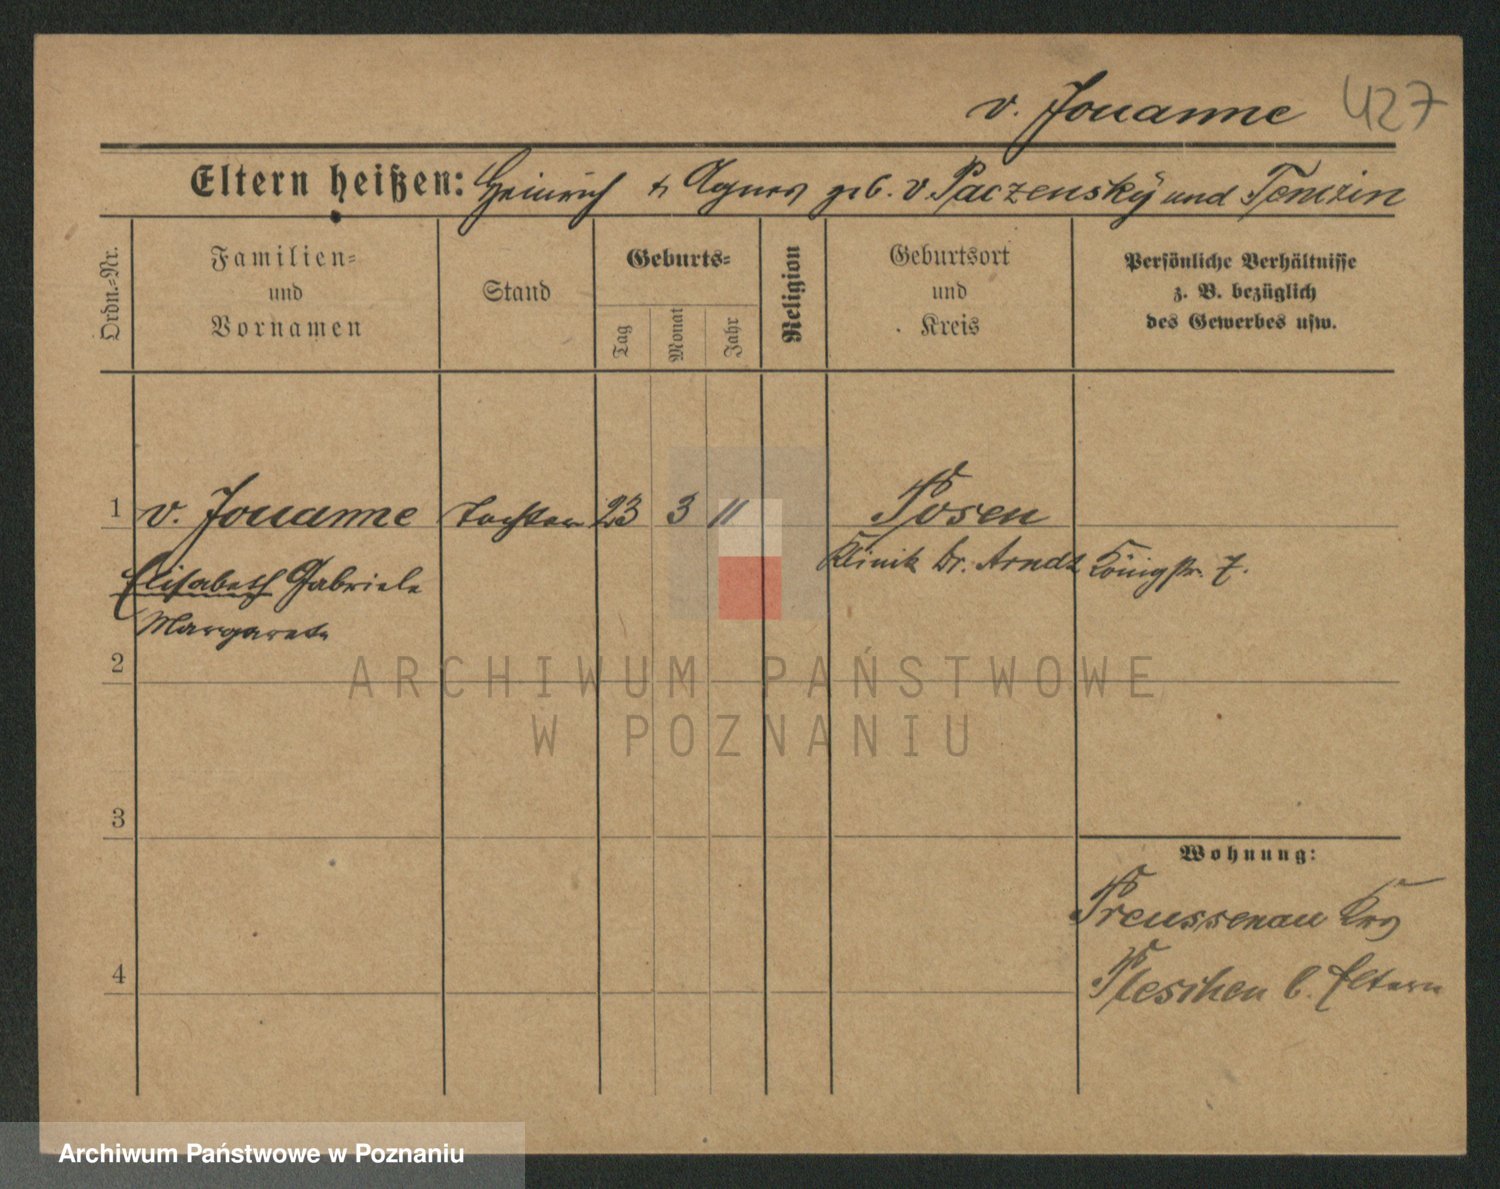 v. Jouanne 427
Eltern heißen: Heinrich & Agnes geb. v. Paczensky und Tenczin
Ordn.-Nr.
Familien-
und
Vornamen
Stand
Geburts-
Tag
Monat
Jahr
Religion
Geburtsort
und
Kreis
Persönliche Verhältnisse
z. B. bezüglich
des Gewerbes usw.
1 v. Jouanne Tochter 23 3 11 Posen
Elisabeth Gabriele
Klinik Dr. Arndt Königstr. 7.
Margarete
2
ARCHIWUM PAŃSTWOWE
W POZNANIU
3
Wohnung:
Preussenau Krs
4
Pleschen b. Eltern
Archiwum Państwowe w Poznaniu